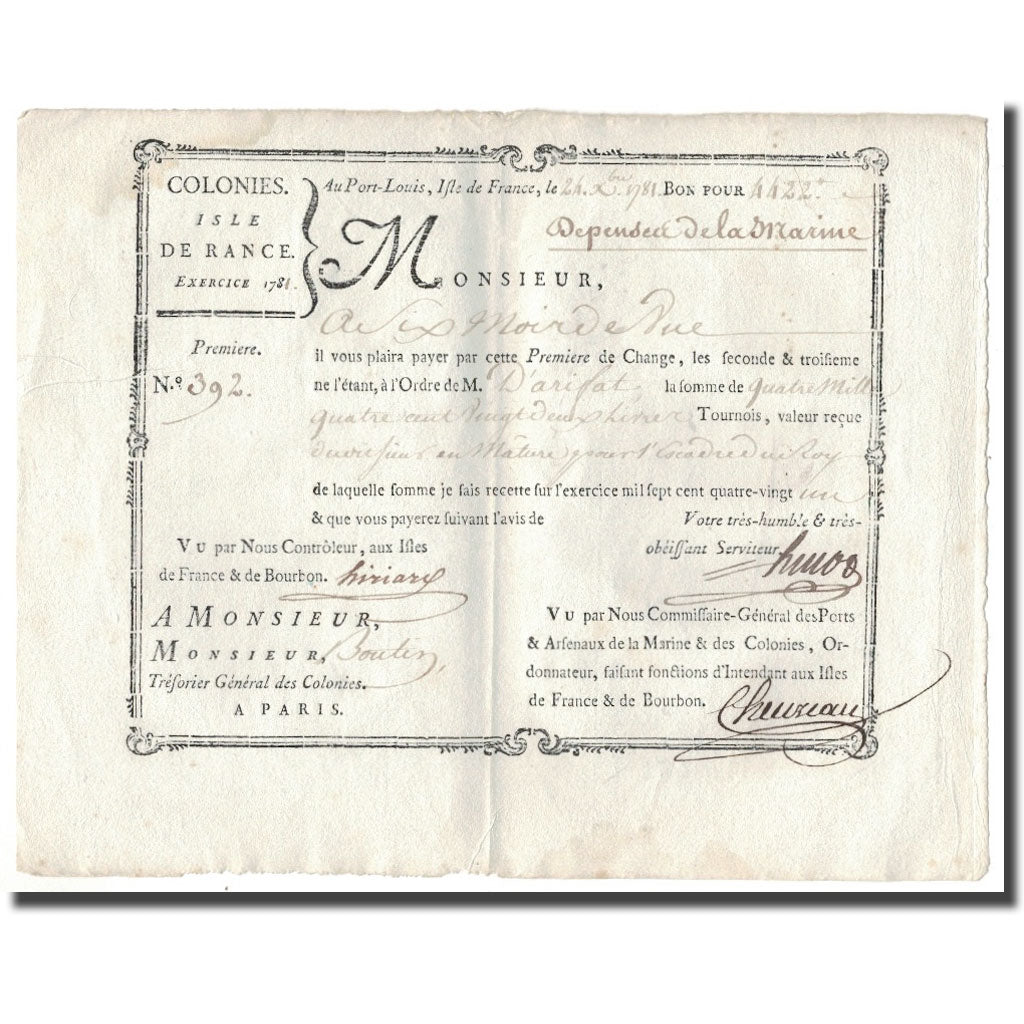 COLONIES.
ISLE
DE RANCE.
EXERCICE 1781.
Au Port-Louis, Isle de France, le 24 Xbre 1781. BON POUR 4422
Depenses de la Marine
MONSIEUR,
A Six Mois de Vue
Premiere.
N.º 392.
il vous plaira payer par cette Premiere de Change, les seconde & troisieme
ne l'étant, à l'Ordre de M. D'arifat la somme de quatre Mill
quatre cent Vingt deux Livres Tournois, valeur reçue
en Mâture pour l'Escadre du Roy
de laquelle somme je fais recette sur l'exercice mil sept cent quatre-vingt un
& que vous payerez suivant l'avis de
Votre très-humble & très-
obéissant Serviteur.
VU par Nous Contrôleur, aux Isles
de France & de Bourbon. hiriart
A MONSIEUR,
MONSIEUR, Boutin,
Trésorier Général des Colonies.
A PARIS.
VU par Nous Commissaire-Général des Ports
& Arsenaux de la Marine & des Colonies, Or-
donnateur, faisant fonctions d'Intendant aux Isles
de France & de Bourbon. Chevreau